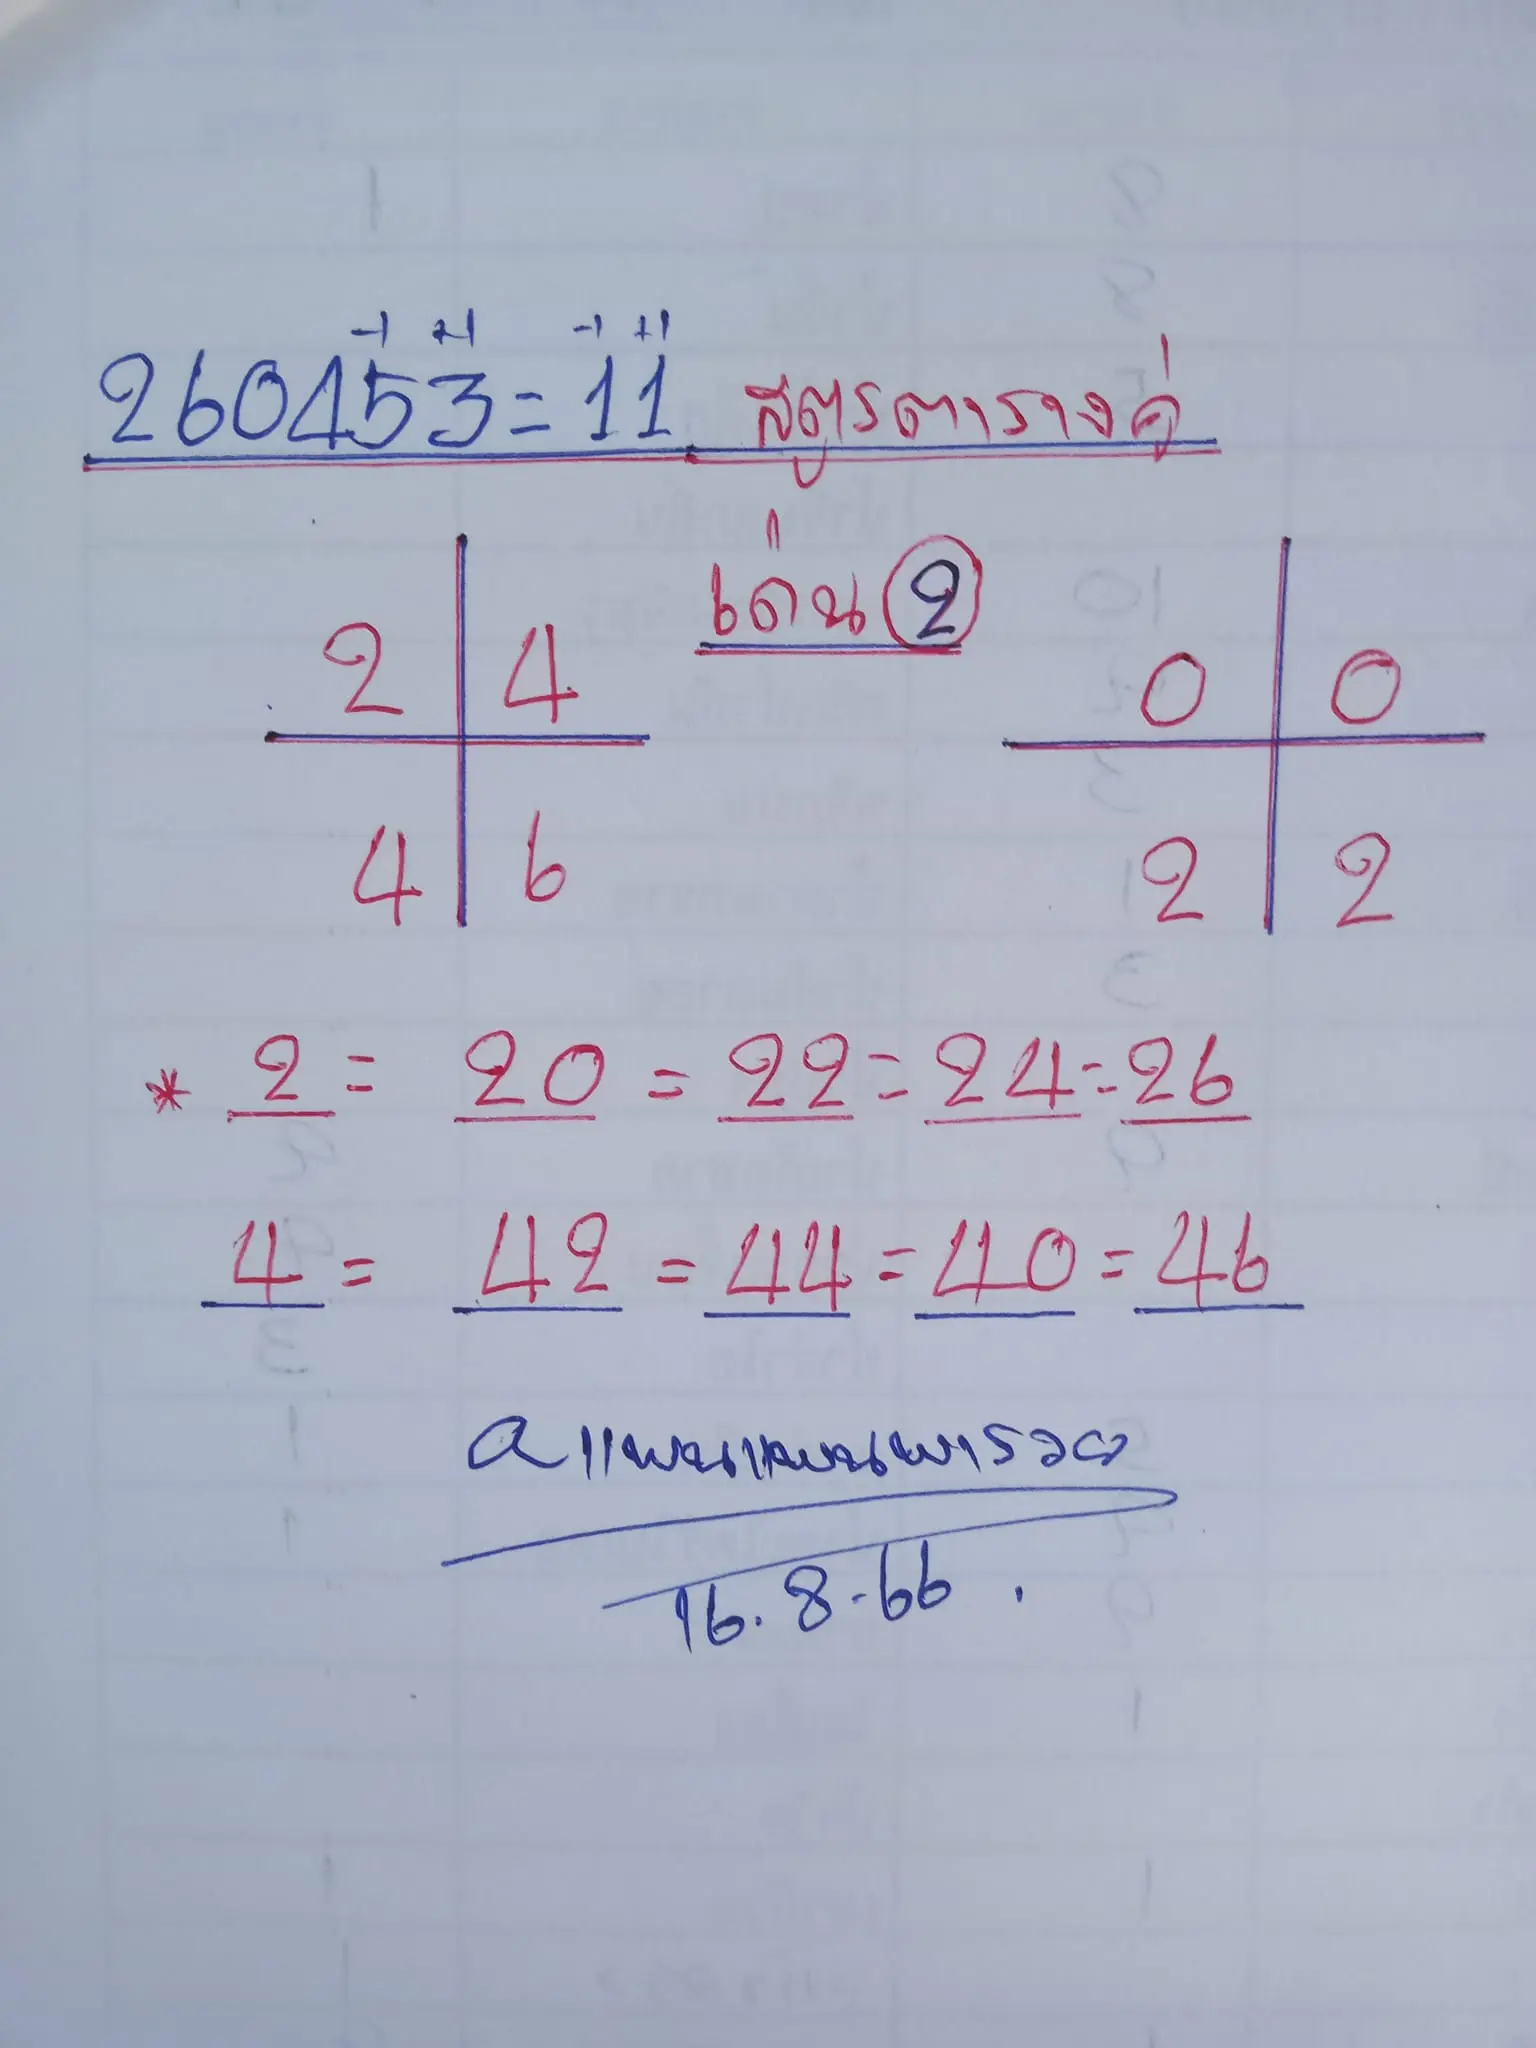 -1 +1 -1 +1
260453=11 สูตรตารางคู่
เด่น 2
2 4 0 0
4 6 2 2
* 2 = 20 = 22 = 24 = 26
4 = 42 = 44 = 40 = 46
16.8.66